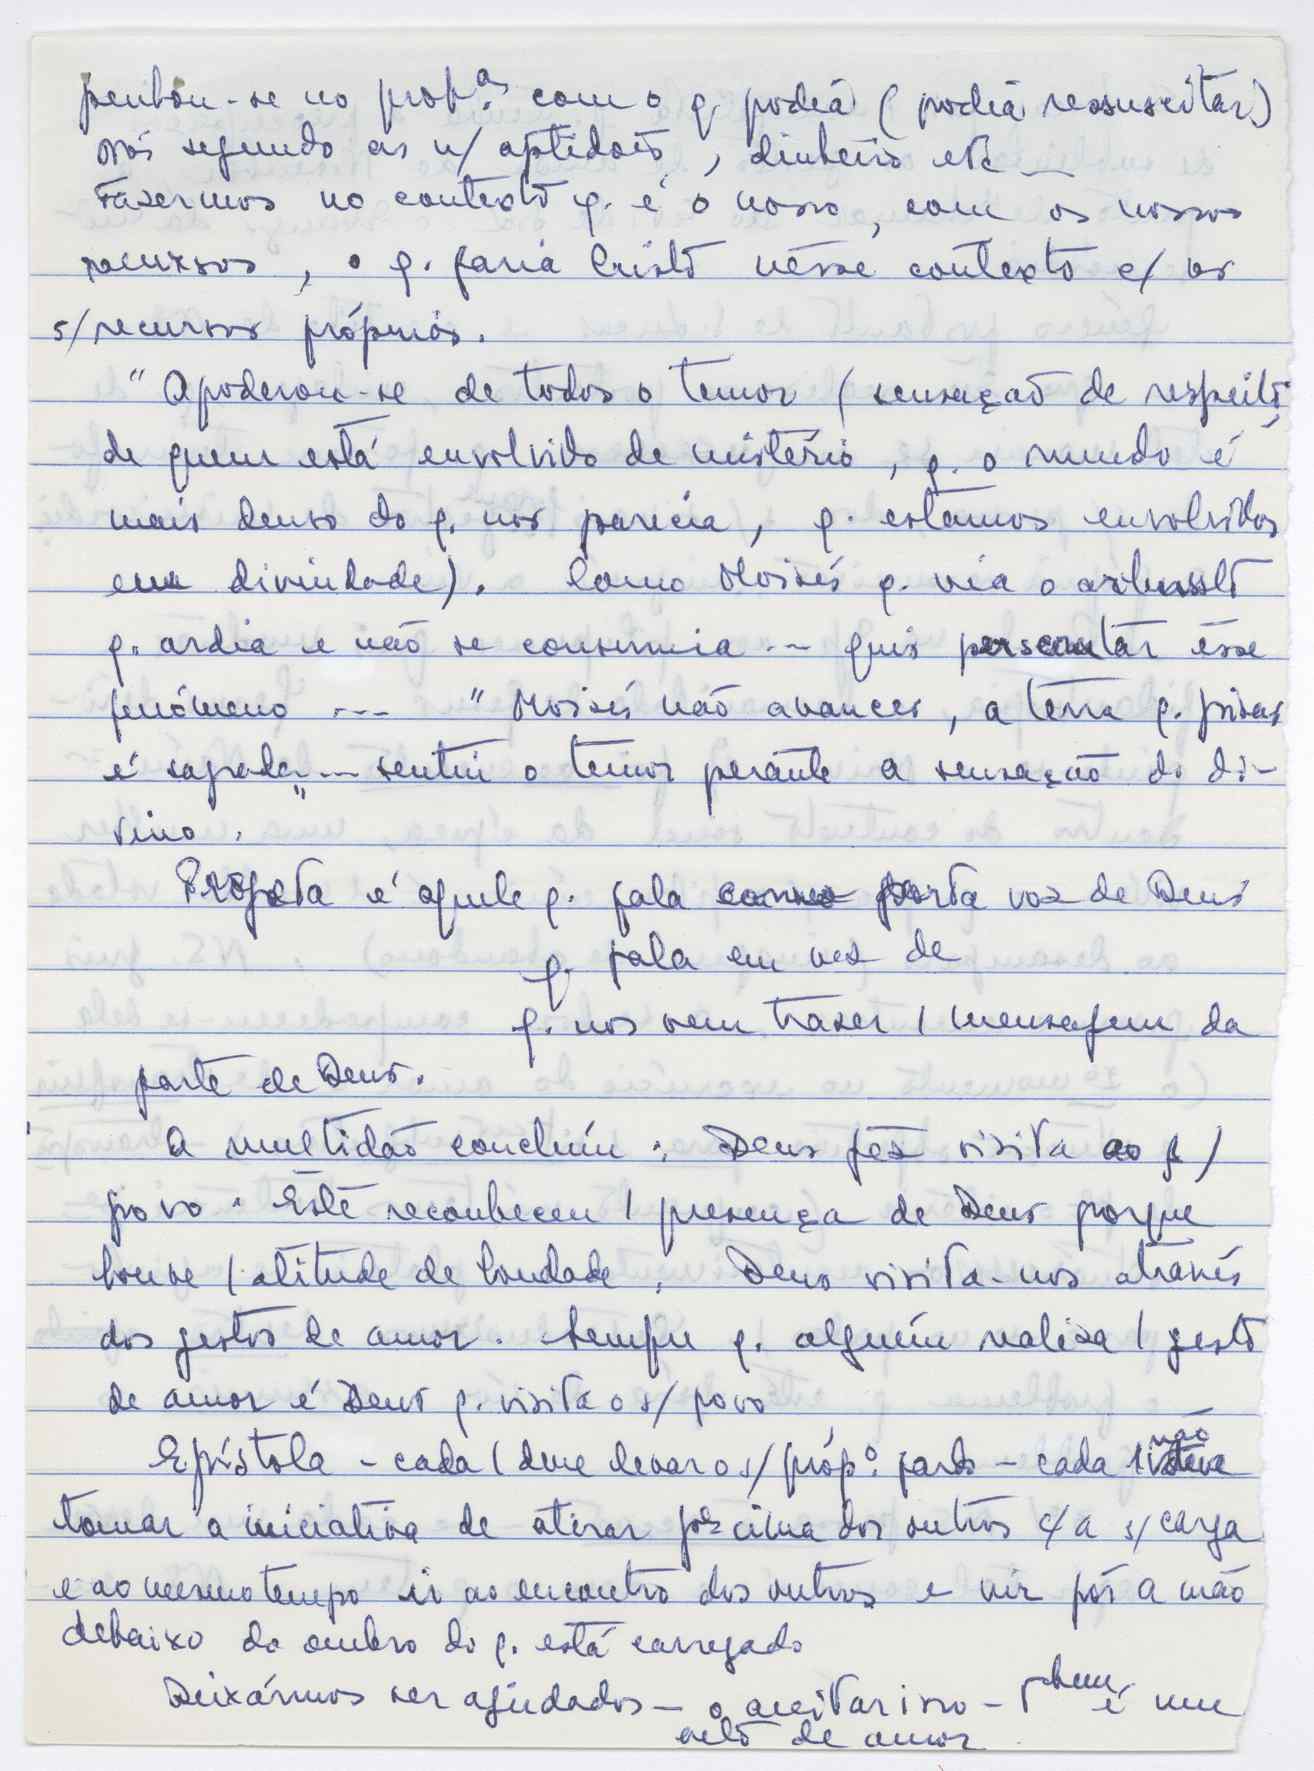 penhou-se no probª. com o q. podia (podia ressuscitar)
Nós segundo as n/ aptidões, dinheiro etc...
Fazermos no contexto q. é o nosso, com os nossos
recursos, o q. faria Cristo nêsse contexto c/ os
s/ recursos próprios.
"Apoderou-se de todos o temor (sensação de respeito
de quem está envolvido de mistério, q. o mundo é
mais denso do q. nos parecia, q. estamos envolvidos
em divindade). Como Moisés q. via o arbusto
q. ardia e não se consumia ... quis perscrutar êsse
fenómeno .... "Moisés não avances, a terra q. pisas
é sagrada..." sentiu o temor perante a sensação do di-
vino.
Profeta é aquele q. fala como porta voz de Deus
q. fala em vez de
q. nos vem trazer 1 mensagem da
parte de Deus.
A multidão concluiu: Deus fez visita ao s/
povo. Este reconheceu 1 presença de Deus porque
houve 1 atitude de bondade. Deus visita-nos através
dos gestos de amor. Sempre q. alguém realiza 1 gesto
de amor é Deus q. visita o s/ povo
Epístola - cada 1 deve levar o s/ própº. fardo - cada 1 não deve
tomar a iniciativa de atirar por cima dos outros c/ a s/ carga
e ao mesmo tempo ir ao encontro dos outros e vir pôr a mão
debaixo do ombro do q. está carregado
Deixármos ser ajudados - o aceitar isso - tbem é um
acto de amor